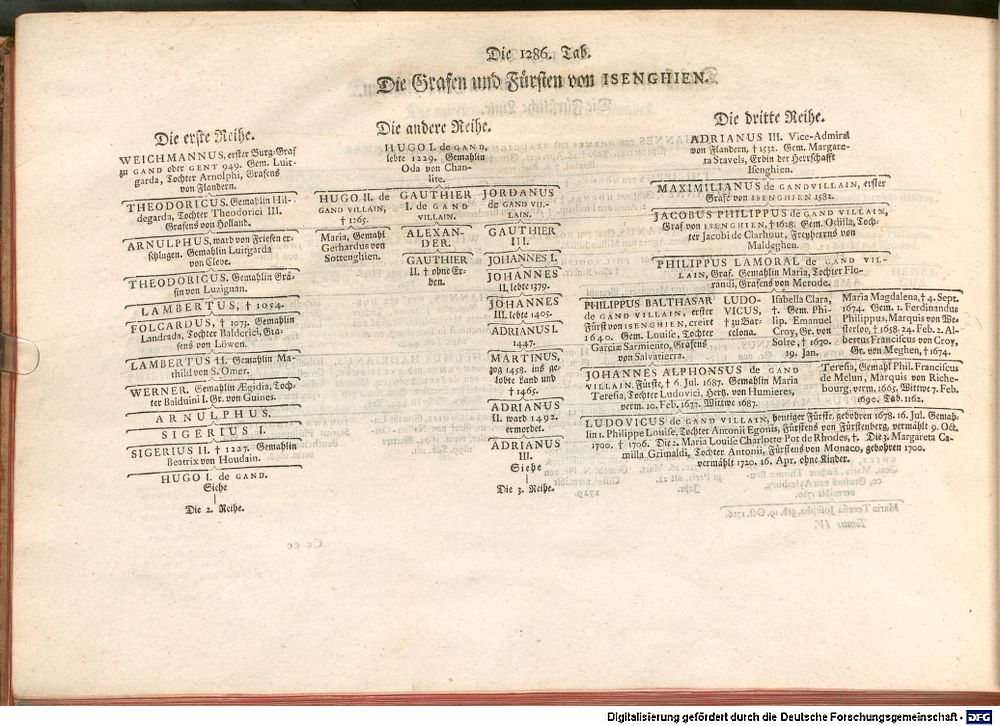 Die 1286. Tab.
Die Grafen und Fürsten von ISENGHIEN.
Die erste Reihe.
WEICHMANNUS, erster Burg-Graf
zu GAND oder GENT 949. Gem. Luit-
garda, Tochter Arnolphi, Grafens
von Flandern.
THEODORICUS. Gemahlin Hil-
degarda, Tochter Theodorici III.
Grafens von Holland.
ARNULPHUS, ward von Friesen er-
schlagen. Gemahlin Luitgarda
von Cleve.
THEODORICUS. Gemahlin Grä-
fin von Luzignan.
LAMBERTUS, † 1054.
FOLCARDUS, † 1073. Gemahlin
Landrada, Tochter Balderici, Gra-
fens von Löwen.
LAMBERTUS II. Gemahlin Ma-
thild von S. Omer.
WERNER. Gemahlin Ægidia, Toch-
ter Balduini I. Gr. von Guines.
ARNULPHUS.
SIGERIUS I.
SIGERIUS II. † 1227. Gemahlin
Beatrix von Houdain.
HUGO I. de GAND.
Siehe
Die 2. Reihe.
Die andere Reihe.
HUGO I. de GAND,
lebte 1229. Gemahlin
Oda von Chan-
lite.
HUGO II. de
GAND VILLAIN,
† 1265.
Maria, Gemahl
Gerhardus von
Sottenghien.
GAUTHIER
I. de GAND
VILLAIN.
ALEXAN-
DER.
GAUTHIER
II. † ohne Er-
ben.
JORDANUS
de GAND VIL-
LAIN.
GAUTHIER
III.
JOHANNES I.
JOHANNES
II. lebte 1379.
JOHANNES
III. lebte 1405.
ADRIANUS I.
1447.
MARTINUS,
zog 1458. ins ge-
lobte Land und
† 1465.
ADRIANUS
II. ward 1492.
ermordet.
ADRIANUS
III.
Siehe
Die 3. Reihe.
Die dritte Reihe.
ADRIANUS III. Vice-Admiral
von Flandern, † 1532. Gem. Margare-
ta Stavels, Erbin der Herrschafft
Isenghien.
MAXIMILIANUS de GANDVILLAIN, erster
Grafe von ISENGHIEN 1582.
JACOBUS PHILIPPUS de GAND VILLAIN,
Graf von ISENGHIEN, † 1628. Gem. Odilla, Toch-
ter Jacobi de Clarhout, Freyherrns von
Maldeghen.
PHILIPPUS LAMORAL de GAND VIL-
LAIN, Graf. Gemahlin Maria, Tochter Flo-
randi, Grafens von Merode.
PHILIPPUS BALTHASAR
de GAND VILLAIN, erster
Fürst von ISENGHIEN, creirt
1640. Gem. Louise, Tochter
Garciæ Sarmiento, Grafens
von Salvatierra.
LUDO-
VICUS,
† zu Bar-
celona.
Isabella Clara,
†. Gem. Phi-
lip. Emanuel
Croy, Gr. von
Solre, † 1670.
19. Jan.
Maria Magdalena, † 4. Sept.
1674. Gem. 1. Ferdinandus
Philippus, Marquis von We-
sterloo, † 1658. 24. Feb. 2. Al-
bertus Franciscus von Croy,
Gr. von Meghen, † 1674.
JOHANNES ALPHONSUS de GAND
VILLAIN, Fürste, † 6. Jul. 1687. Gemahlin Maria
Teresia, Tochter Ludovici, Hertz. von Humieres,
verm. 10. Feb. 1677. Wittwe 1687.
Teresia, Gemahl Phil. Franciscus
de Melun, Marquis von Riche-
bourg, verm. 1665. Wittwe 7. Feb.
1690. Tab. 1162.
LUDOVICUS de GAND VILLAIN, heutiger Fürste, gebohren 1678. 16. Jul. Gemah-
lin 1. Philippe Louise, Tochter Antonii Egonis, Fürstens von Fürstenberg, vermählt 9. Oct.
1700. † 1706. Die 2. Maria Louise Charlotte Pot de Rhodes, †. Die 3. Margareta Ca-
milla Grimaldi, Tochter Antonii, Fürstens von Monaco, gebohren 1700.
vermählt 1720. 16. Apr. ohne Kinder.
Digitalisierung gefördert durch die Deutsche Forschungsgemeinschaft - DFG